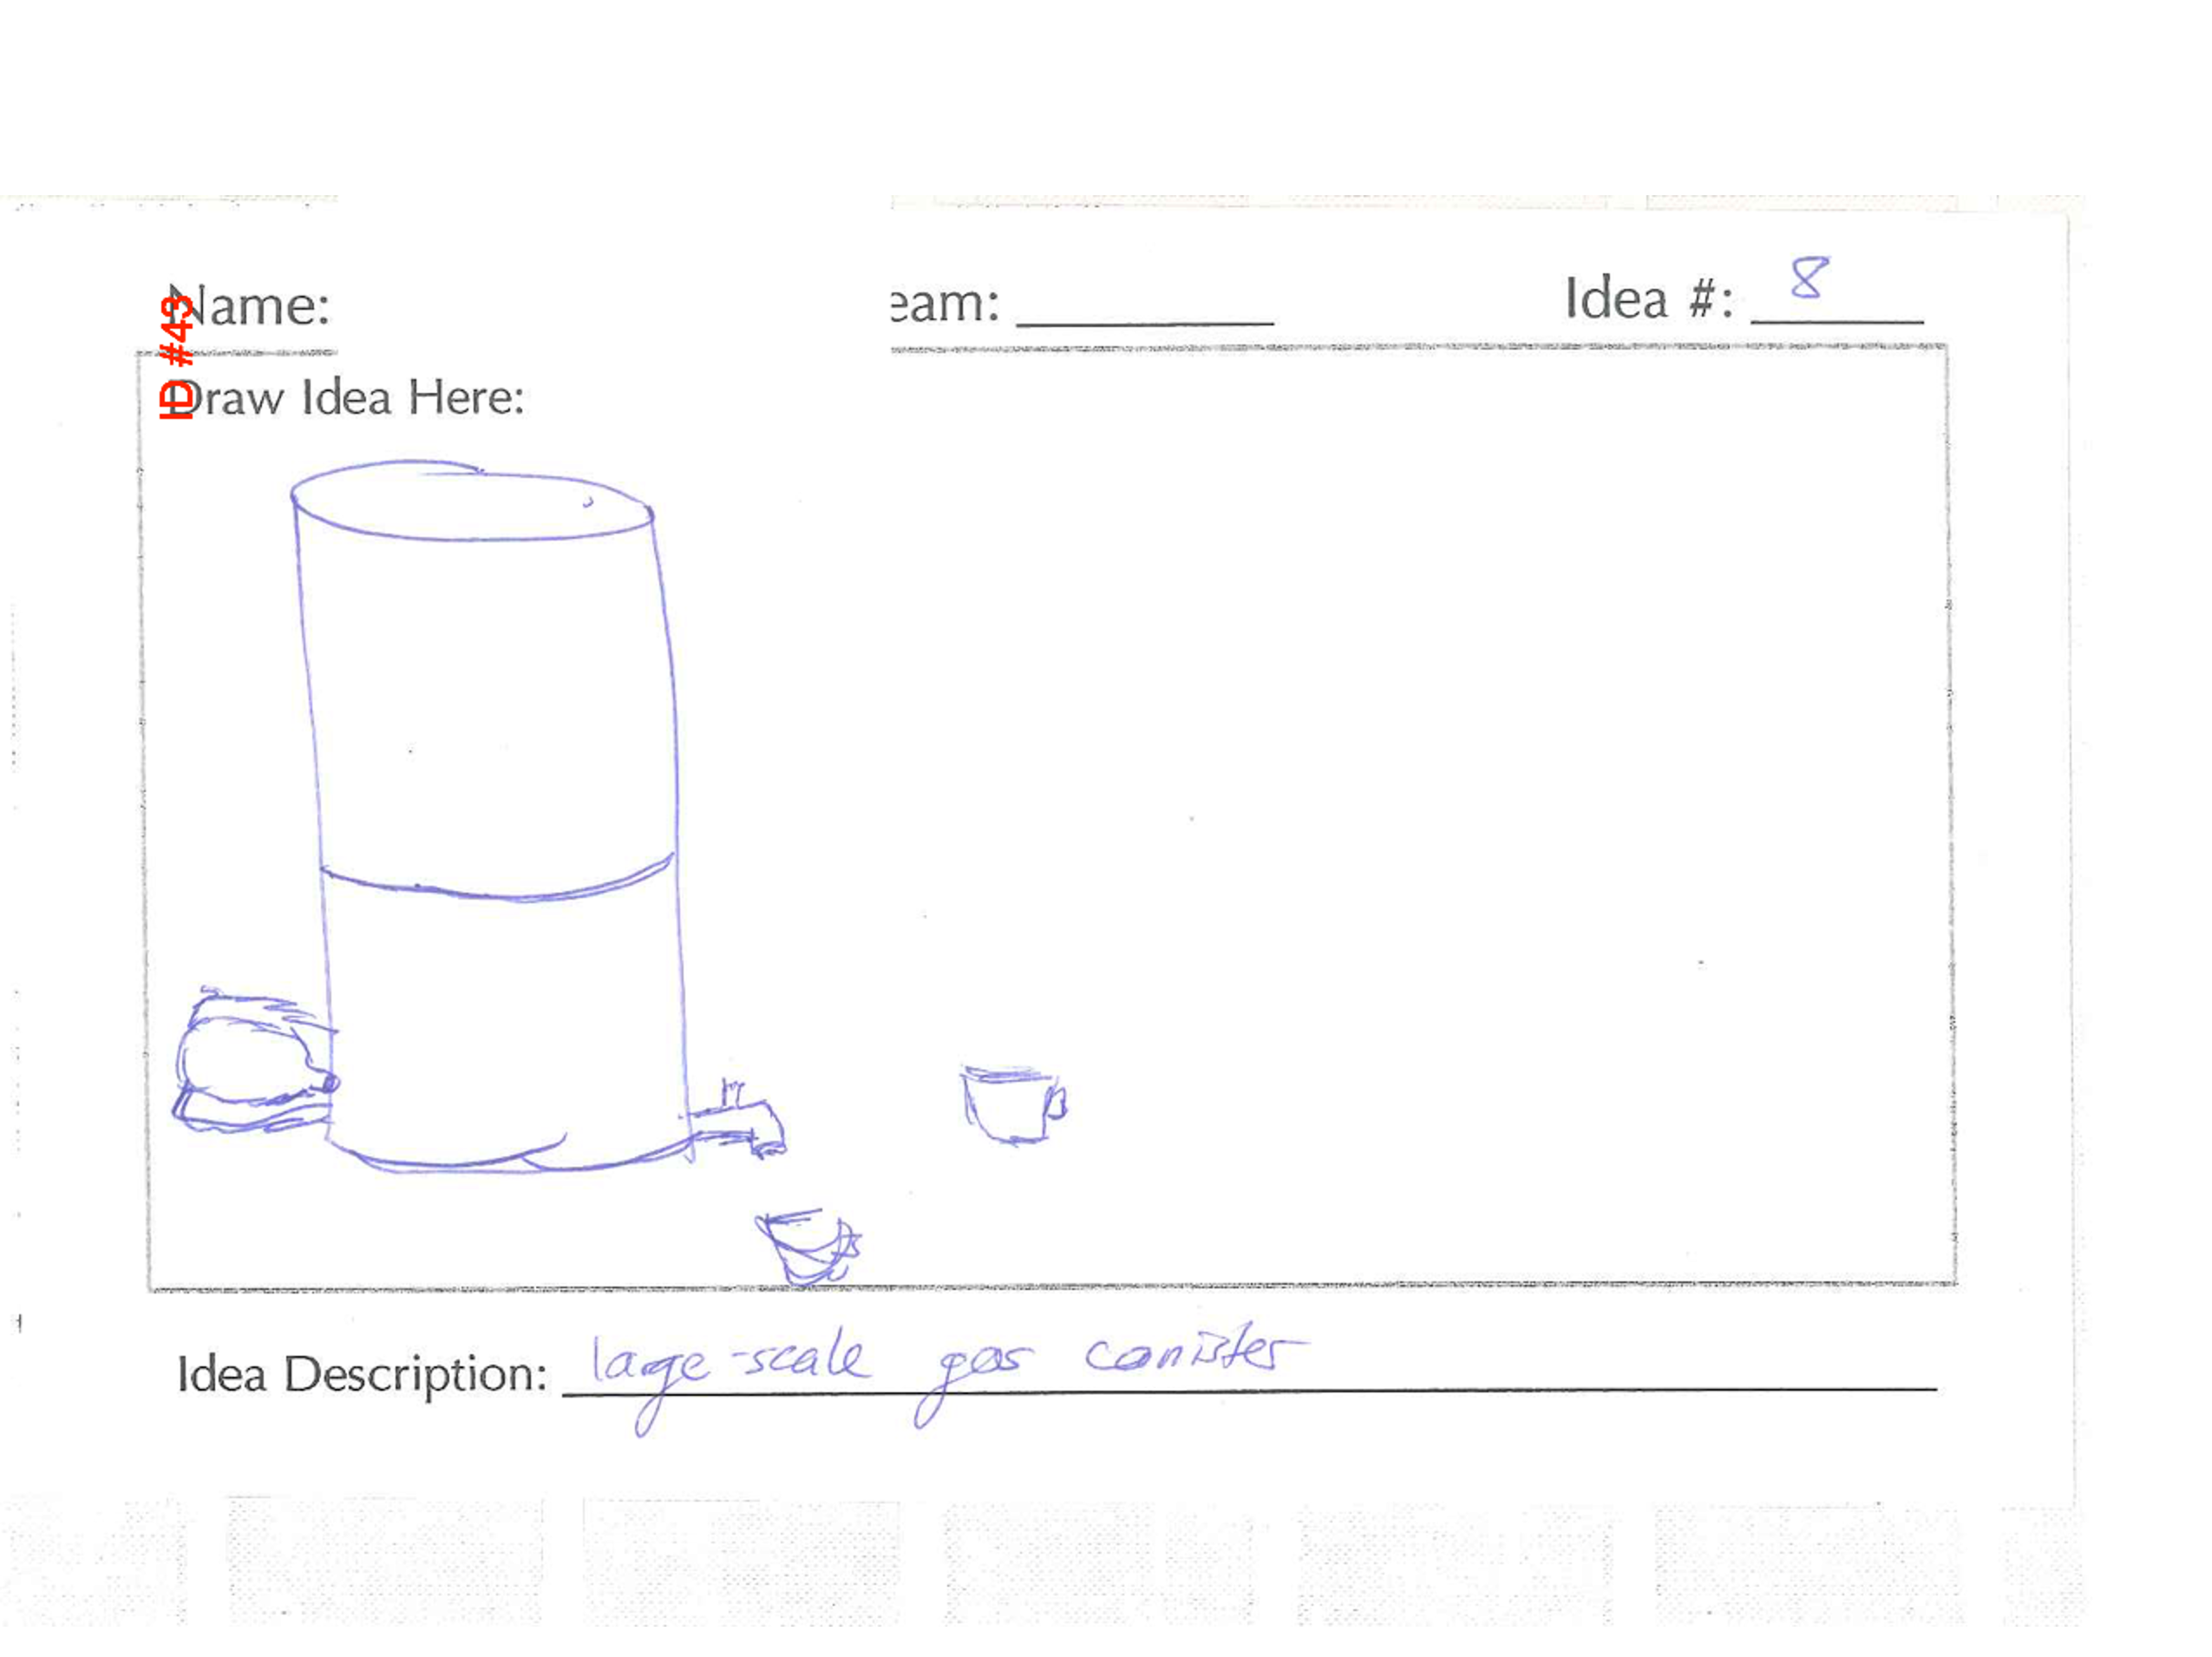 Name: eam: Idea #: 8
ID #43
Draw Idea Here:
Idea Description: large-scale gas canister